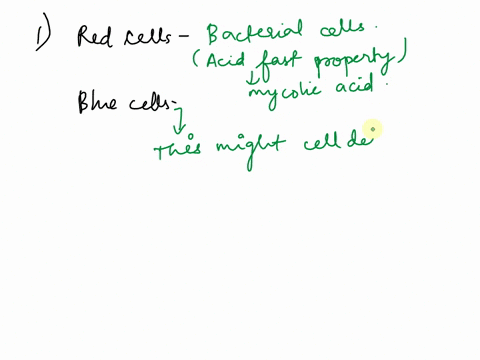 1) Red cells - Bacterial cells.
(Acid fast property)
mycolic acid.
Blue cells-
This might cell de